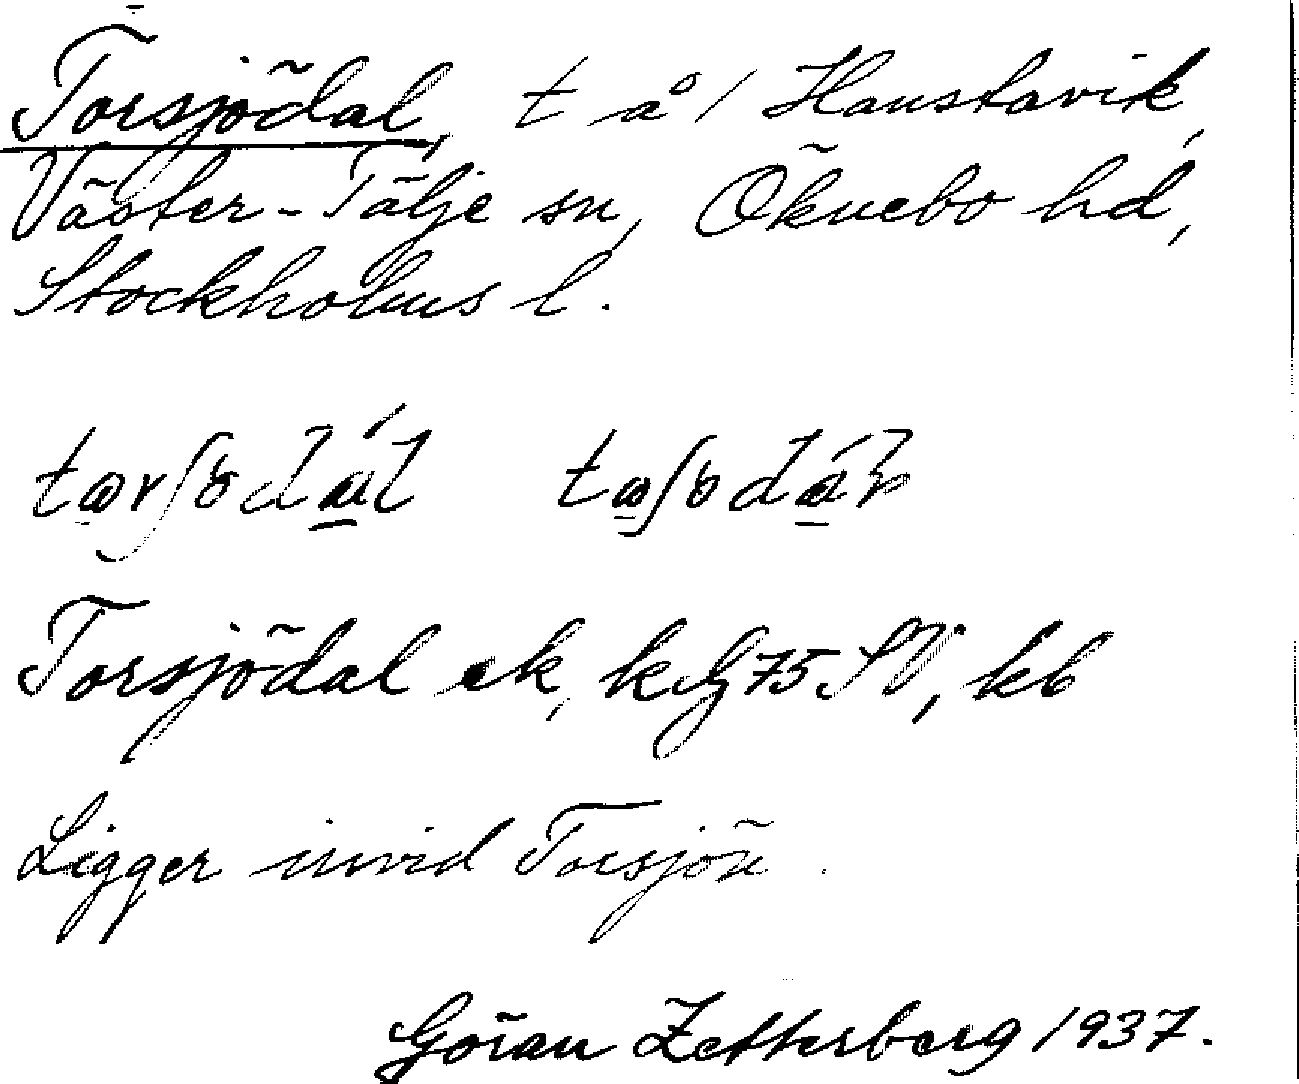 Torsjödal, t å / Hanstavik,
Väster-Tälje sn, Öknebo hd,
Stockholms l.
Torsjödal ek, kG 75 SV, kb
Ligger invid Torsjön.
Göran Zetterberg 1937.